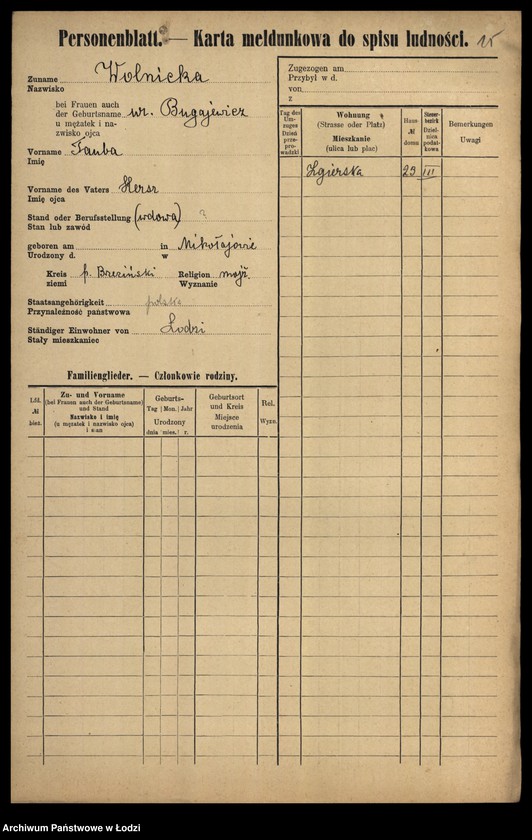 Personenblatt. — Karta meldunkowa do spisu ludności. 15
Zuname Wolnicka
Nazwisko
bei Frauen auch
der Geburtsname ur. Bugajewicz
u mężatek i na-
zwisko ojca
Vorname Tauba
Imię
Vorname des Vaters Hersz
Imię ojca
Stand oder Berufsstellung (wdowa) ?
Stan lub zawód
geboren am in Mikołajowie
Urodzony d. w
Kreis p. Brzeziński Religion mojż.
ziemi Wyznanie
Staatsangehörigkeit polska
Przynależność państwowa
Ständiger Einwohner von Łodzi
Stały mieszkaniec
Familienglieder. — Członkowie rodziny.
Lfd.
№
bież.
Zu- und Vorname
(bei Frauen auch der Geburtsname)
und Stand
Nazwisko i imię
(u mężatek i nazwisko ojca)
i stan
Geburts-
Tag Mon. Jahr
Urodzony
dnia mies. r.
Geburtsort
und Kreis
Miejsce
urodzenia
Rel.
Wyzn.
Zugezogen am
Przybył w d.
von
z
Tag des
Um-
zuges
Dzień
prze-
prowadzki
Wohnung
(Strasse oder Platz)
Mieszkanie
(ulica lub plac)
Haus
№
domu
Steuer-
bezirk
Dziel-
nica
podat-
kowa
Bemerkungen
Uwagi
Zgierska 29 III
Archiwum Państwowe w Łodzi